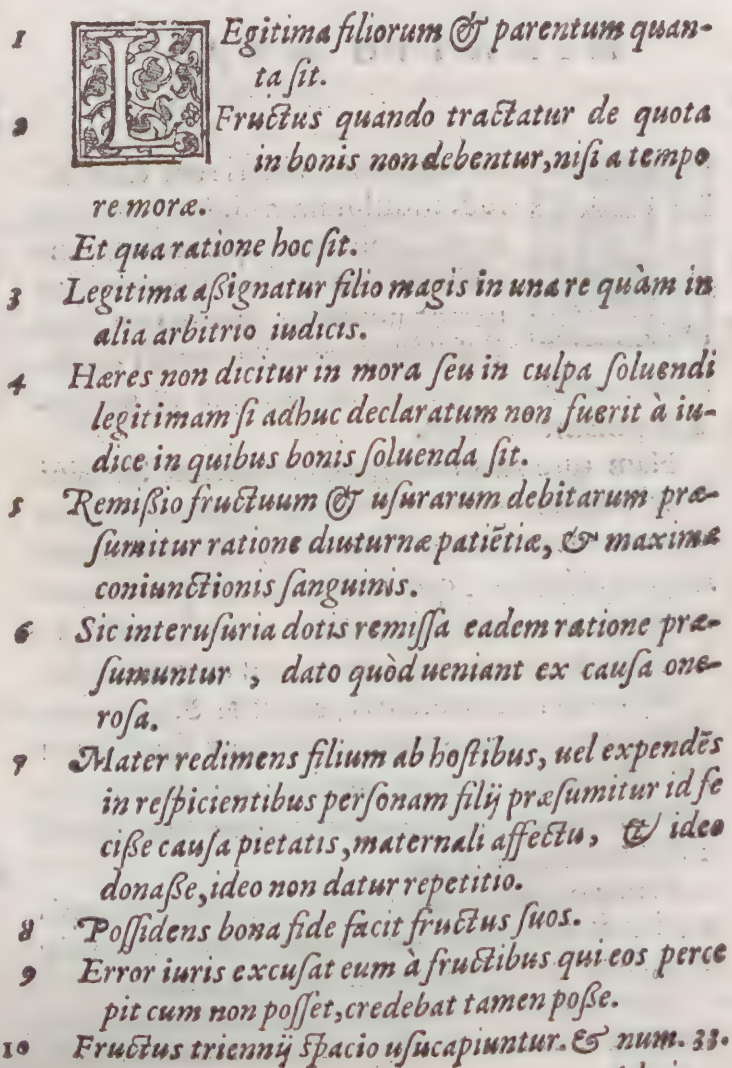 1 LEgitima filiorum & parentum quan-
ta ſit.
2 Fructus quando tractatur de quota
in bonis non debentur, niſi a tempo
re moræ.
Et qua ratione hoc ſit.
3 Legitima aßignatur filio magis in una re quàm in
alia arbitrio iudicis.
4 Hæres non dicitur in mora ſeu in culpa ſoluendi
legitimam ſi adhuc declaratum non fuerit à iu-
dice in quibus bonis ſoluenda ſit.
5 Remißio fructuum & uſurarum debitarum præ-
ſumitur ratione diuturnæ patiẽtiæ, & maximæ
coniunctionis ſanguinis.
6 Sic interuſuria dotis remiſſa eadem ratione præ-
ſumuntur, dato quòd ueniant ex cauſa one-
roſa.
7 Mater redimens filium ab hoſtibus, uel expendẽs
in reſpicientibus perſonam filij præſumitur id fe
ciße cauſa pietatis, maternali affectu, & ideo
donaße, ideo non datur repetitio.
8 Poſſidens bona fide facit fructus ſuos.
9 Error iuris excuſat eum à fructibus qui eos perce
pit cum non poſſet, credebat tamen poße.
10 Fructus triennij ſpacio uſucapiuntur. & num. 33.